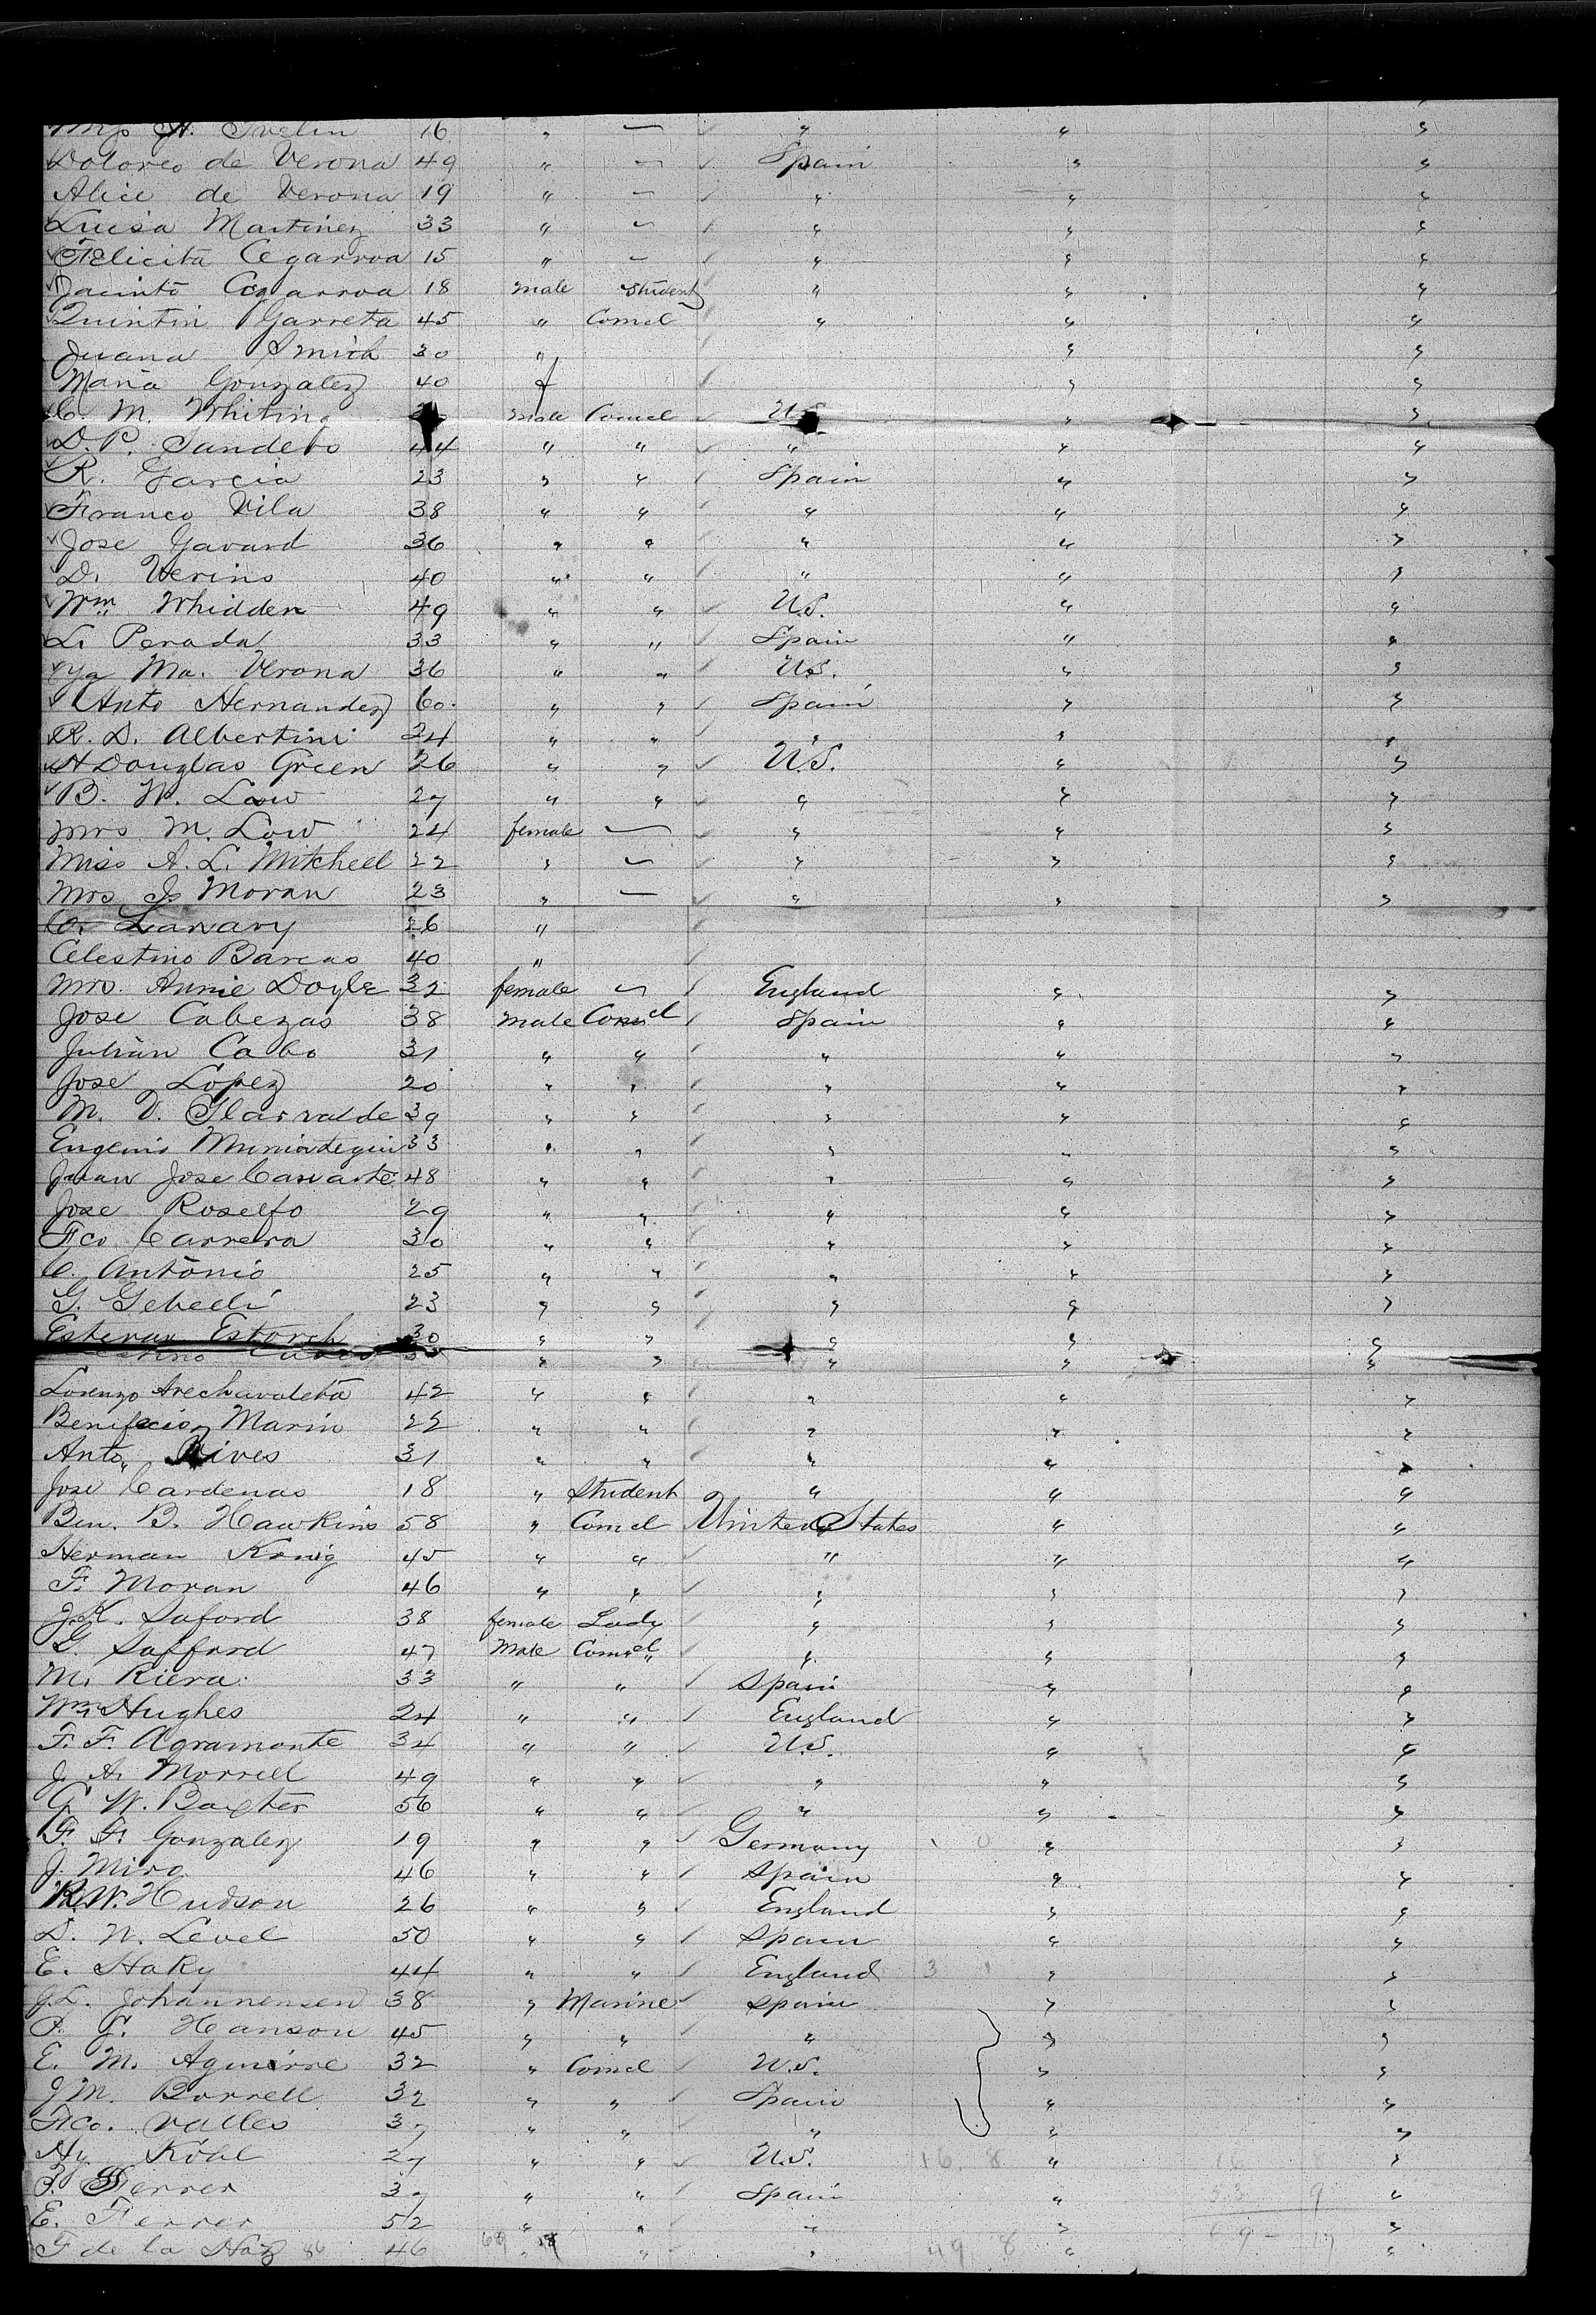 Mrs A. Ivelin 16 " — " " "
Dolores de Verona 49 " — Spain " "
Alice de Verona 19 " — " " "
Luisa Martinez 33 " — " " "
Felicita Cegarroa 15 " — " " "
Jacinto Cegarroa 18 male Student " " "
Quintin Garreta 45 " Comcl " " "
Juana Smith 30 " " "
Maria Gonzalez 40 f " "
C. M. Whiting male Comcl U.S. " "
D. P. Sandebo 44 " " " " "
R. Garcia 23 " " Spain " "
Franco Vila 38 " " " " "
Jose Gavard 36 " " " " "
D. Werins 40 " " " " "
Wm Whidden 49 " " U.S. " "
L. Perada 33 " " Spain " "
Ya Ma. Verona 36 " " U.S. " "
Anto Hernandez 60 " " Spain " "
R. D. Albertini 24 " " " " "
H Douglas Green 26 " " U.S. " "
B. W. Low 27 " " " " "
Mrs M. Low 24 female — " " "
Miss A. L. Mitchell 22 " — " " "
Mrs J. Moran 23 " — " " "
C. Lawary 26 "
Celestino Barcas 40 "
Mrs. Annie Doyle 32 female — England " "
Jose Cabezas 38 Male Comcl Spain " "
Julian Cabo 31 " " " " "
Jose Lopez 20 " " " " "
M. V. Ylarralde 39 " " " " "
Eugenio Muniategui 33 " " " " "
Juan Jose 48 " " " " "
Jose Roselfo 29 " " " " "
Fco Carrera 30 " " " " "
C. Antonio 25 " " " " "
G. Gebelli 23 " " " " "
Estevan Estorch 30 " " " " "
" " " " "
Lorenzo Arechavaleta 42 " " " " "
Benifacio Marin 22 " " " " "
Anto Vives 31 " " " " "
Jose Cardenas 18 " Student " " "
Ben. B. Hawkins 58 " Comcl United States " "
Herman Konig 45 " " " " "
F. Moran 46 " " " " "
J. K. Saford 38 female Lady " " "
G. Safford 47 Male Comcl " " "
M. Riera 33 " " Spain " "
Wm Hughes 24 " " England " "
F. F. Agramonte 34 " " U.S. " "
J. A. Morrell 49 " " " " "
G W. Baxter 56 " " " " "
F. F. Gonzalez 19 " " Germany " "
J. Miro 46 " " Spain " "
R. W. Hudson 26 " " England " "
D. N. Level 50 " " Spain " "
E. Haky 44 " " England 3 " "
J. L. Johannensen 38 " Marine Spain " "
P. J. Hanson 45 " " " " "
E. M. Aguirre 32 " Comcl U.S. " "
J M. Borrell 32 " " Spain " "
Fco. Valles 37 " " " " "
Hy Köhl 27 " " U.S. 16 8 " 16 8 "
P. Ferrer 37 " " Spain " 53 9 "
E. Ferrer 52 " " " " 69 - 17 "
F de la Haz 86 46 69 " " 49 8 " "